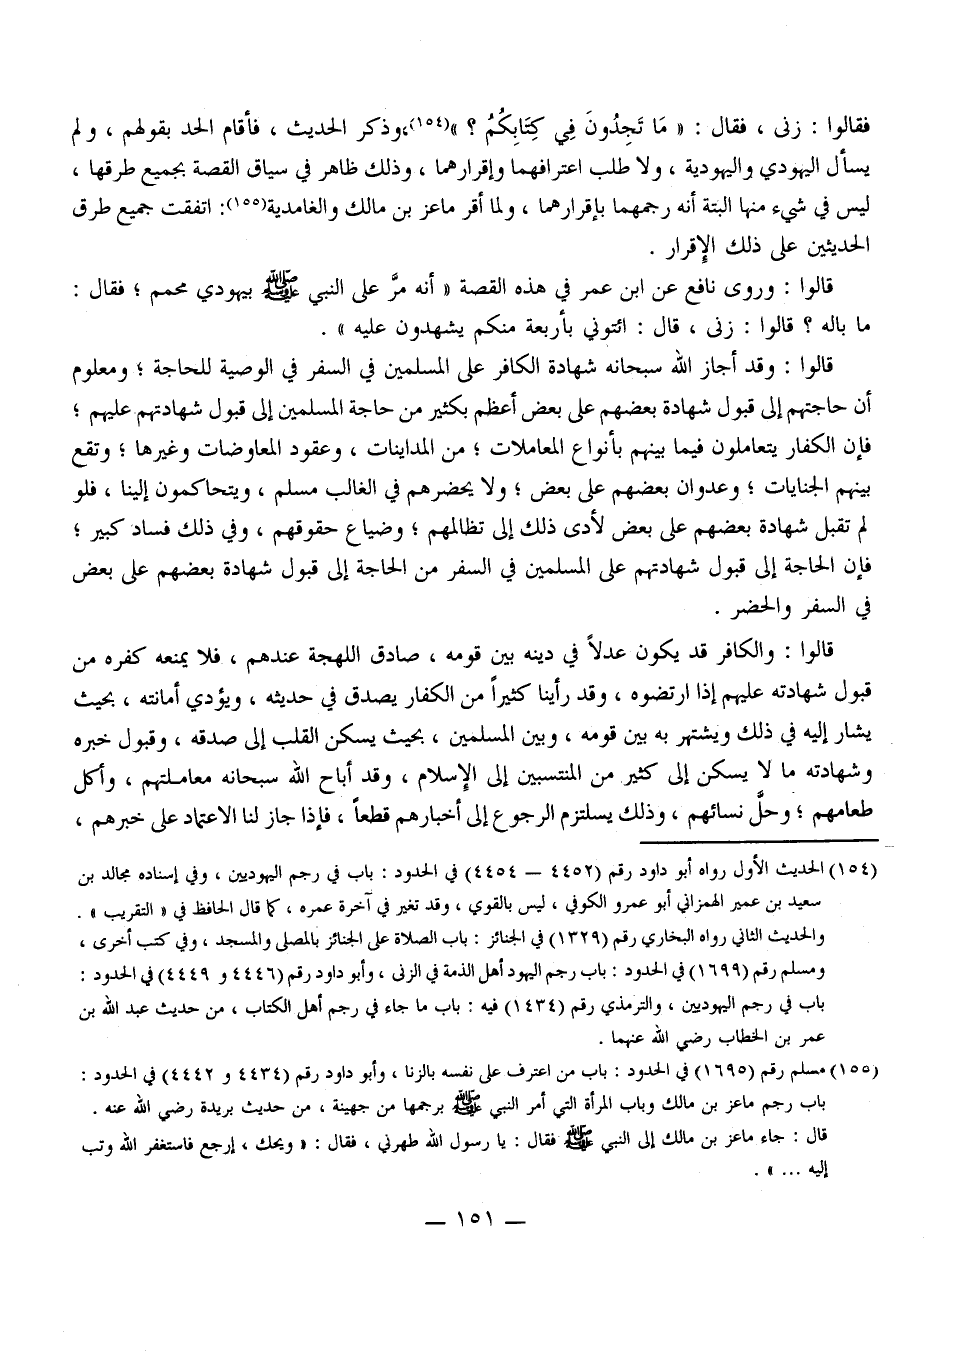 فقالوا : زنى ، فقال : « مَا تَجِدُونَ فِي كِتَابِكُمُ ؟ »(١٥٤)،وذكر الحديث ، فأقام الحد بقولهم ، ولم
يسأل اليهودي واليهودية ، ولا طلب اعترافهما وإقرارهما ، وذلك ظاهر في سياق القصة بجميع طرقها ،
ليس في شيء منها البتة أنه رجمهما بإقرارهما ، ولما أقر ماعز بن مالك والغامدية(١٥٥): اتفقت جميع طرق
الحديثين على ذلك الإقرار .
قالوا : وروى نافع عن ابن عمر في هذه القصة « أنه مرَّ على النبي ﷺ بيهودي محمم ؛ فقال :
ما باله ؟ قالوا : زنى ، قال : ائتوني بأربعة منكم يشهدون عليه » .
قالوا : وقد أجاز الله سبحانه شهادة الكافر على المسلمين في السفر في الوصية للحاجة ؛ ومعلوم
أن حاجتهم إلى قبول شهادة بعضهم على بعض أعظم بكثير من حاجة المسلمين إلى قبول شهادتهم عليهم ؛
فإن الكفار يتعاملون فيما بينهم بأنواع المعاملات ؛ من المداينات ، وعقود المعاوضات وغيرها ؛ وتقع
بينهم الجنايات ؛ وعدوان بعضهم على بعض ؛ ولا يحضرهم في الغالب مسلم ، ويتحاكمون إلينا ، فلو
لم تقبل شهادة بعضهم على بعض لأدى ذلك إلى تظالمهم ؛ وضياع حقوقهم ، وفي ذلك فساد كبير ؛
فإن الحاجة إلى قبول شهادتهم على المسلمين في السفر من الحاجة إلى قبول شهادة بعضهم على بعض
في السفر والحضر .
قالوا : والكافر قد يكون عدلاً في دينه بين قومه ، صادق اللهجة عندهم ، فلا يمنعه كفره من
قبول شهادته عليهم إذا ارتضوه ، وقد رأينا كثيراً من الكفار يصدق في حديثه ، ويؤدي أمانته ، بحيث
يشار إليه في ذلك ويشتهر به بين قومه ، وبين المسلمين ، بحيث يسكن القلب إلى صدقه ، وقبول خبره
وشهادته ما لا يسكن إلى كثير من المنتسبين إلى الإسلام ، وقد أباح الله سبحانه معاملتهم ، وأكل
طعامهم ؛ وحلَّ نسائهم ، وذلك يستلزم الرجوع إلى أخبارهم قطعاً ، فإذا جاز لنا الاعتماد على خبرهم ،
(١٥٤) الحديث الأول رواه أبو داود رقم (٤٤٥٢ — ٤٤٥٤) في الحدود : باب في رجم اليهوديين ، وفي إسناده مجالد بن
سعيد بن عمير الهمزاني أبو عمرو الكوفي ، ليس بالقوي ، وقد تغير في آخرة عمره ، كما قال الحافظ في « التقريب » .
والحديث الثاني رواه البخاري رقم (١٣٢٩) في الجنائز : باب الصلاة على الجنائز بالمصلى والمسجد ، وفي كتب أخرى ،
ومسلم رقم (١٦٩٩) في الحدود : باب رجم اليهود أهل الذمة في الزنى ، وأبو داود رقم (٤٤٤٦ و ٤٤٤٩) في الحدود :
باب في رجم اليهوديين ، والترمذي رقم (١٤٣٤) فيه : باب ما جاء في رجم أهل الكتاب ، من حديث عبد الله بن
عمر بن الخطاب رضي الله عنهما .
(١٥٥) مسلم رقم (١٦٩٥) في الحدود : باب من اعترف على نفسه بالزنا ، وأبو داود رقم (٤٤٣٤ و ٤٤٤٢) في الحدود :
باب رجم ماعز بن مالك وباب المرأة التي أمر النبي ﷺ برجمها من جهينة ، من حديث بريدة رضي الله عنه .
قال : جاء ماعز بن مالك إلى النبي ﷺ فقال : يا رسول الله طهرني ، فقال : « ويحك ، إرجع فاستغفر الله وتب
إليه ... » .
— ١٥١ —